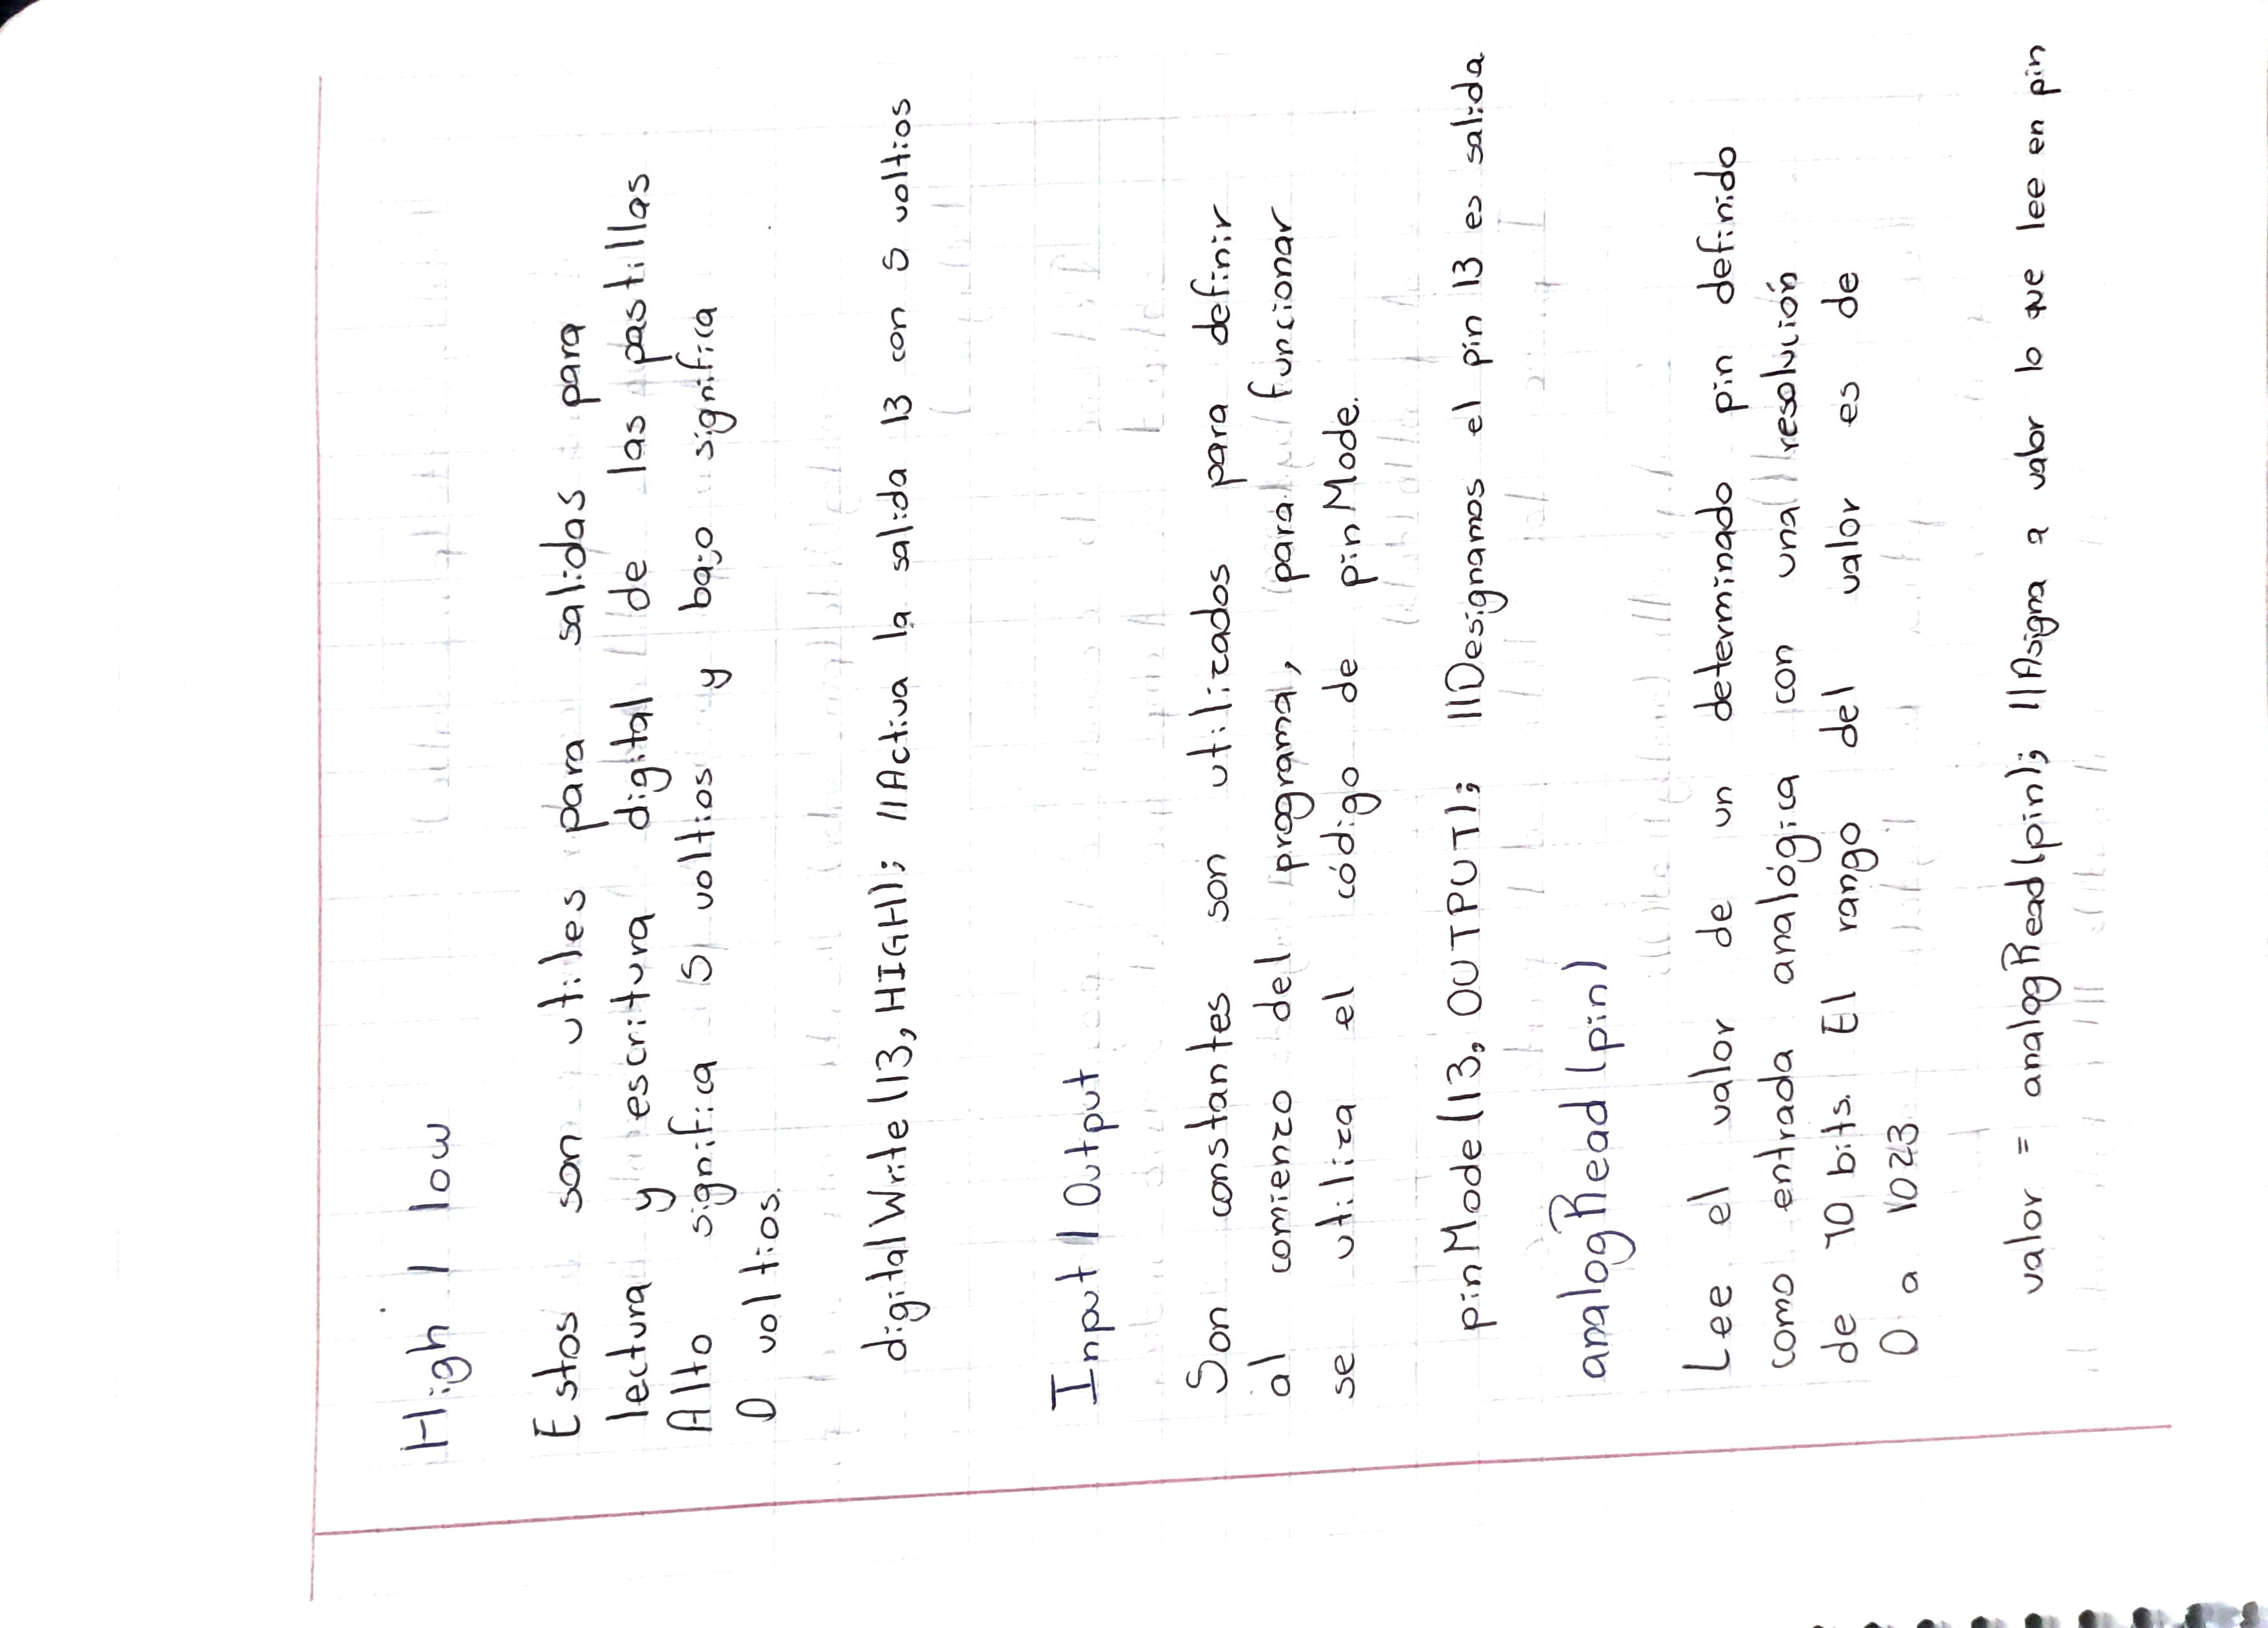 High / low
Estos son utiles para salidas para
lectura y escritura digital de las pastillas
Alto significa 5 voltios y bajo significa
0 voltios.
digitalWrite (13, HIGH); //Activa la salida 13 con 5 voltios
Input / Output
Son constantes son utilizados para definir
al comienzo del programa, para funcionar
se utiliza el código de pinMode.
pinMode (13, OUTPUT); //Designamos el pin 13 es salida
analogRead (pin)
Lee el valor de un determinado pin definido
como entrada analógica con una resolución
de 10 bits. El rango del valor es de
0 a 1023
valor = analogRead (pin); //Asigna a valor lo que lee en pin